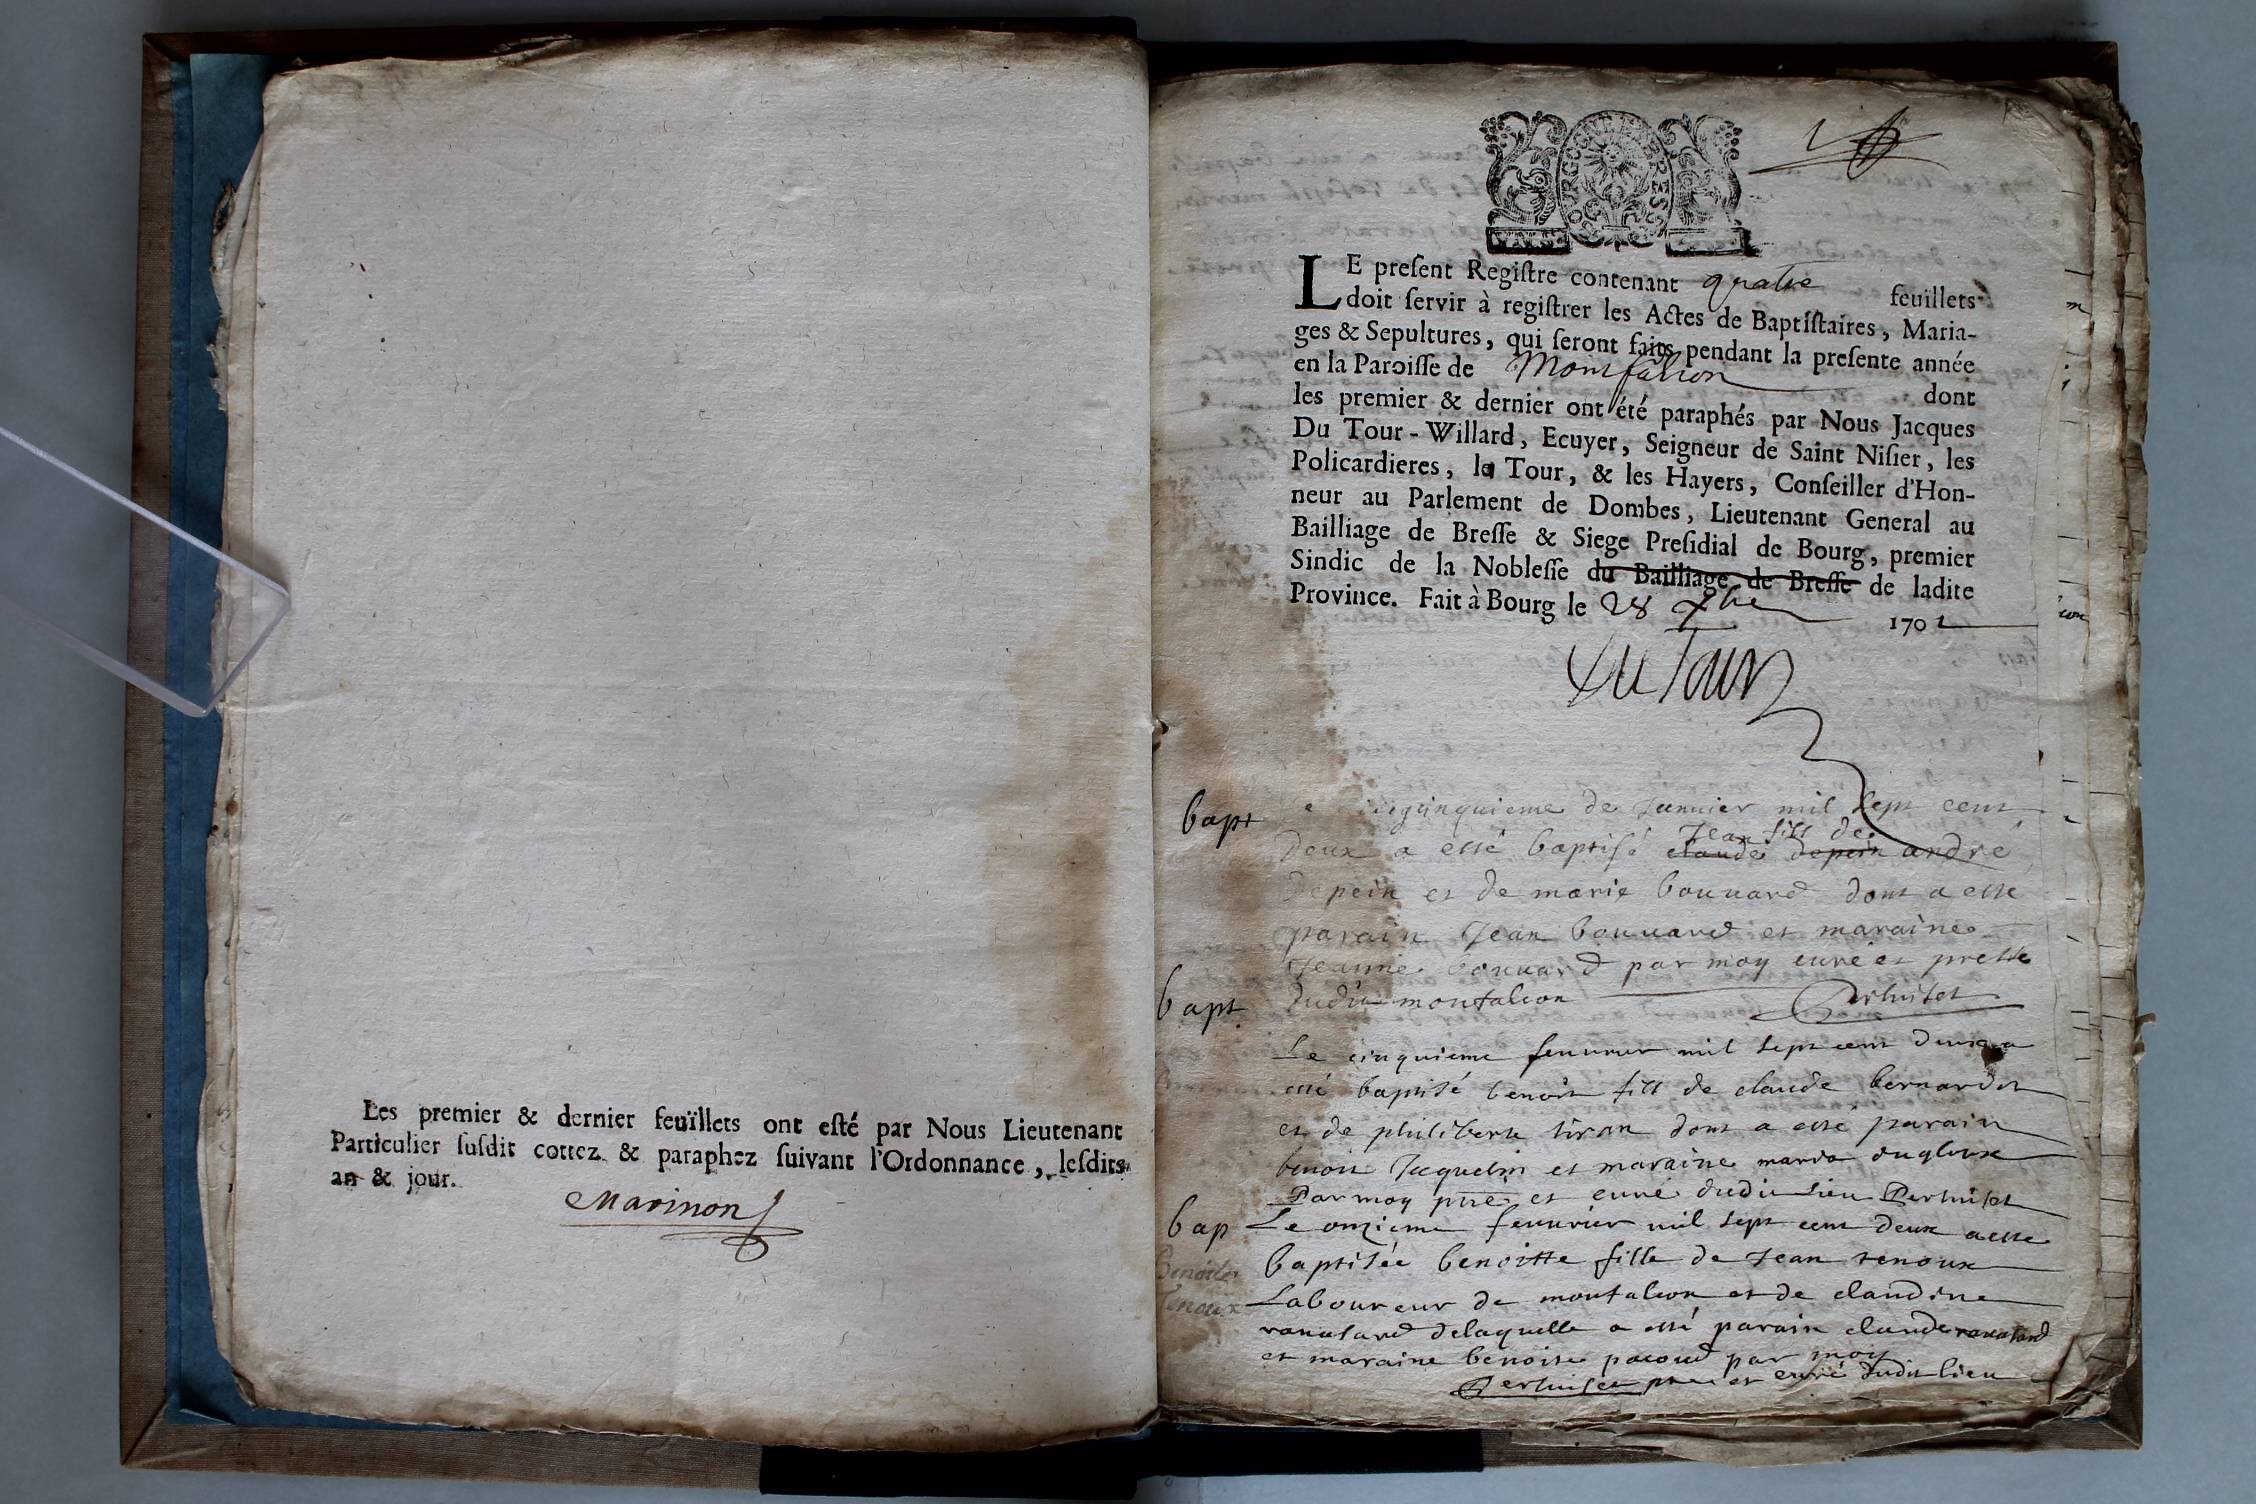 Les premier & dernier feuïllets ont esté par Nous Lieutenant
Particulier susdit cottez & paraphez suivant l'Ordonnance, lesdits
an & jour.
Marinon
BOURG GVRE EN BRESSE
LE present Registre contenant quatre feuillets
doit servir à registrer les Actes de Baptistaires, Maria-
ges & Sepultures, qui seront faits pendant la presente année
en la Paroisse de Montfalcon dont
les premier & dernier ont été paraphés par Nous Jacques
Du Tour-Willard, Ecuyer, Seigneur de Saint Nisier, les
Policardieres, le Tour, & les Hayers, Conseiller d'Hon-
neur au Parlement de Dombes, Lieutenant General au
Bailliage de Bresse & Siege Presidial de Bourg, premier
Sindic de la Noblesse du Bailliage de Bresse de ladite
Province. Fait à Bourg le 28 xbre 1701
DuTour
bapt
cinquieme de Januier mil sept cent
Jean fils de
deux a esté baptisé claude depein andré
Depein et de marie bouuard dont a esté
parain Jean bouuard et maraine
Jeanne bouuard par moy curé et prestre
bapt
dudit montfalcon Perhuiset
Le cinquieme feuurier mil sept cent deux a
esté baptisé benoit fils de claude bernardet
et de philiberte tiran dont a esté parain
benoit Jacquelin et maraine
Par moy pre et curé dudit Lieu Perhuiset
bap
Le onzieme feuurier mil sept cent deux a esté
baptisée benoitte fille de Jean renoux
Benoite
renoux
Laboureur de montfalcon et de claudine
rauassard delaquelle a esté parain claude rauassard
et maraine benoite pacoud par moy
Perhuiset pre et curé dudit lieu